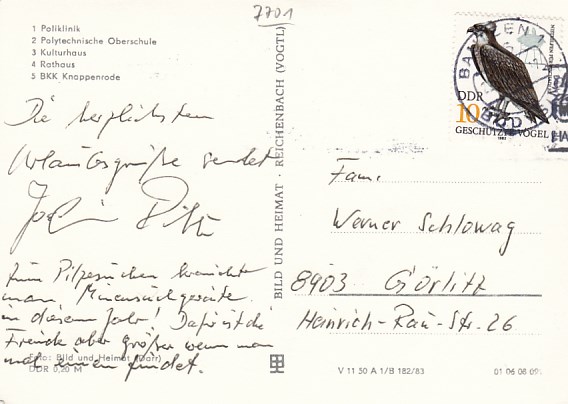 7701
1 Poliklinik
2 Polytechnische Oberschule
3 Kulturhaus
4 Rathaus
5 BKK Knappenrode
Die herzlichsten
Urlaubsgrüße sendet
Zum Pilzesuchen brauchte
man Minensuchgeräte
in diesem Jahr! Dafür ist die
Freude aber größer wenn man
mal einen findet.
Foto: Bild und Heimat (Darr)
DDR 0,20 M
BILD UND HEIMAT · REICHENBACH (VOGTL)
BAUTZEN 1
DDR
10
GESCHÜTZTE VÖGEL
1982
Fam.
Werner Schlowag
8903 Görlitz
Heinrich-Rau-Str. 26
V 11 50 A 1/B 182/83
01 06 08 09